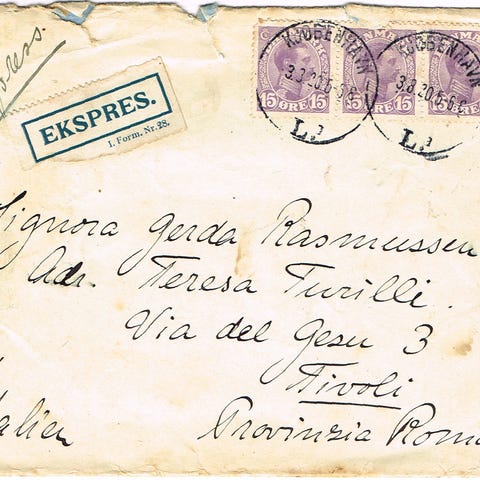 EKSPRES.
I. Form. Nr. 28.
KJØBENHAVN
3.3.20.5-6 E.
L.
KJØBENHAVN
3.3.20.5-6 E.
L.
15 ØRE 15
15 ØRE 15
15
Signora Gerda Rasmussen
Adr. Teresa Turilli.
Via del Gesu 3
Tivoli
Provinzia Roma
Italien